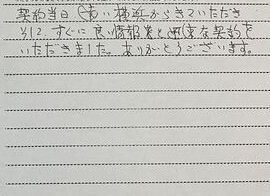 契約当日（夫）横浜からきていただき
すぐに良い情報業と迅速な契約を
いただきました。ありがとうございます。